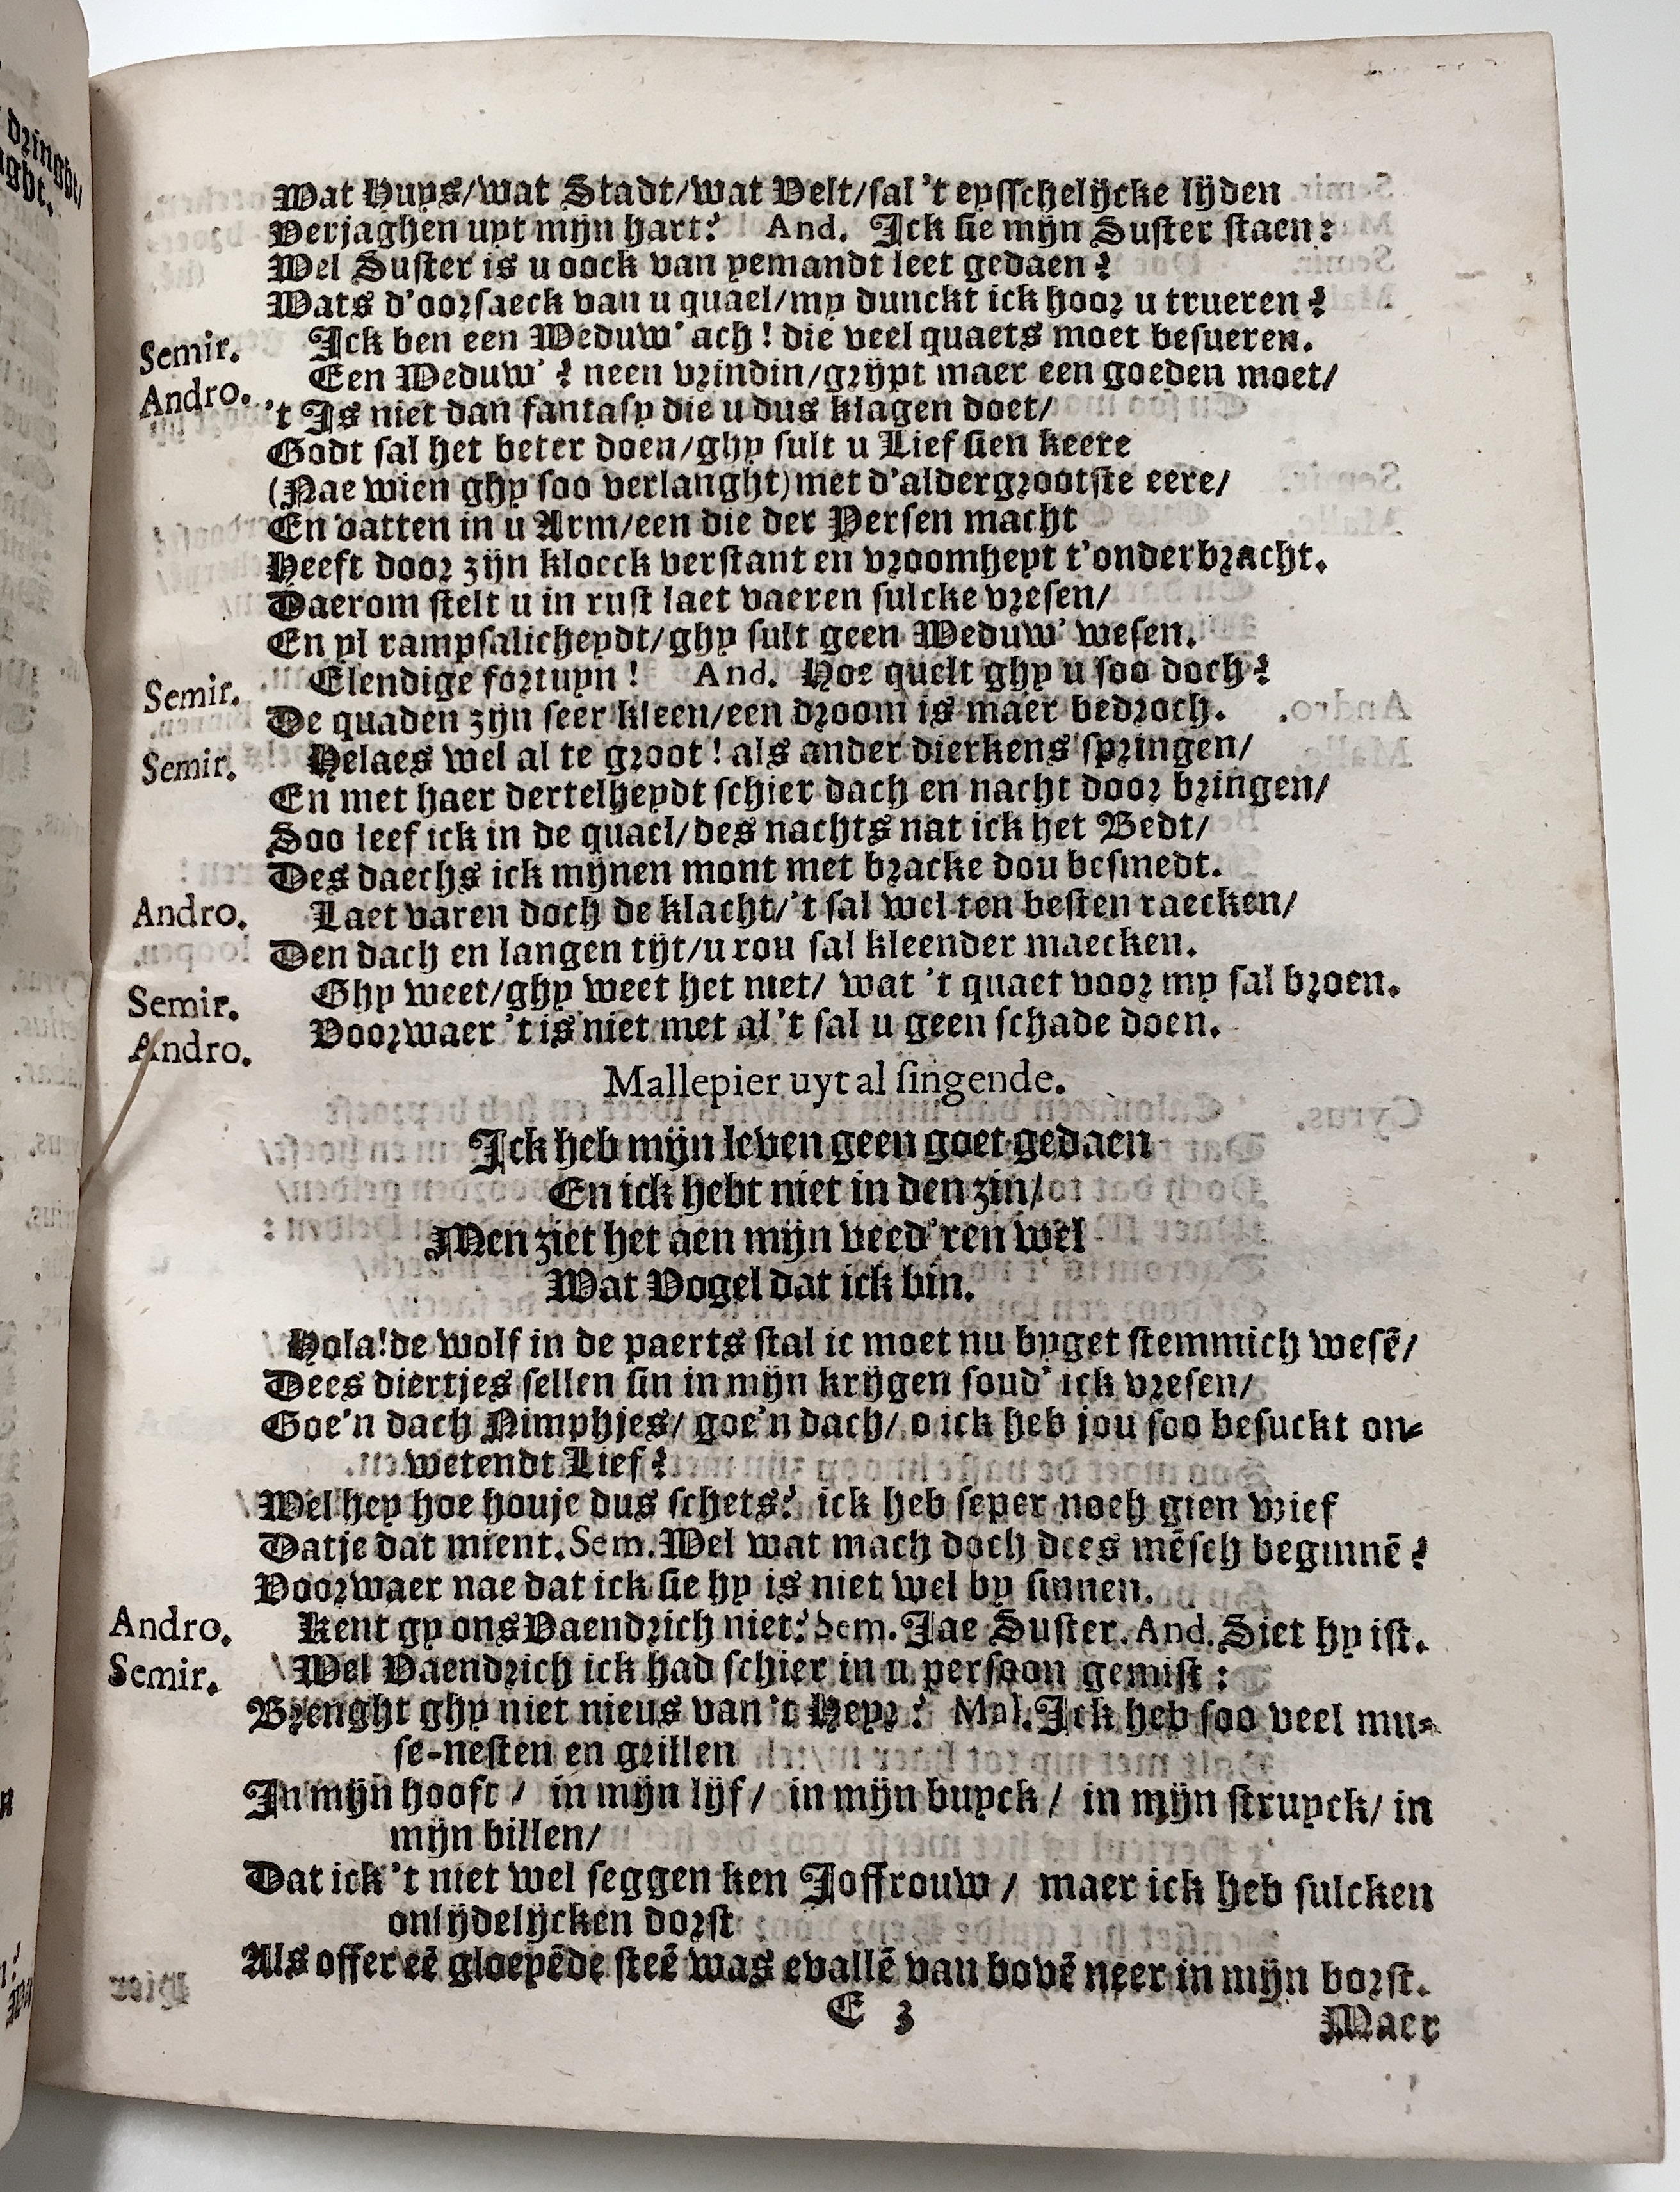 Wat Huys/wat Stadt/wat Velt/sal 't eysschelijcke lijden
Verjaghen uyt mijn hart? And. Ick sie mijn Suster staen:
Wel Suster is u oock van yemandt leet gedaen?
Wats d'oorsaeck van u quael/my dunckt ick hoor u trueren?
Semir. Ick ben een Weduw' ach! die veel quaets moet besueren.
Andro. Een Weduw'? neen vrindin/grijpt maer een goeden moet/
't Is niet dan fantasy die u dus klagen doet/
Godt sal het beter doen/ghy sult u Lief sien keere
(Nae wien ghy soo verlanght)met d'aldergrootste eere/
En vatten in u Arm/een die der Persen macht
Heeft door zijn kloeck verstant en vroomheyt t'onderbracht.
Daerom stelt u in rust laet vaeren sulcke vresen/
En yl rampsalicheydt/ghy sult geen Weduw' wesen.
Semir. Elendige fortuyn! And. Hoe quelt ghy u soo doch?
De quaden zijn seer kleen/een droom is maer bedroch.
Semir. Helaes wel al te groot! als ander dierkens springen/
En met haer dertelheydt schier dach en nacht door bringen/
Soo leef ick in de quael/des nachts nat ick het Bedt/
Des daechs ick mijnen mont met bracke dou besmedt.
Andro. Laet varen doch de klacht/'t sal wel ten besten raecken/
Den dach en langen tijt/u rou sal kleender maecken.
Semir. Ghy weet/ghy weet het niet/ wat 't quaet voor my sal broen.
Andro. Voorwaer 't is niet met al 't sal u geen schade doen.
Mallepier uyt al singende.
Ick heb mijn leven geen goet gedaen
En ick hebt niet in den zin/
Men ziet het aen mijn veed'ren wel
Wat Vogel dat ick bin.
Hola!de wolf in de paerts stal ic moet nu byget stemmich wesē/
Dees diertjes sellen sin in mijn krijgen soud' ick vresen/
Goe'n dach Nimphjes/ goe'n dach/ o ick heb jou soo besuckt on-
wetendt Lief?
Wel hey hoe houje dus schets? ick heb seper noch gien wief
Datje dat mient. Sem. Wel wat mach doch dees mēsch beginnē?
Voorwaer nae dat ick sie hy is niet wel by sinnen.
Andro. Kent gy ons Vaendrich niet? Sem. Jae Suster. And. Siet hy ist.
Semir. Wel Vaendrich ick had schier in u persoon gemist:
Brenght ghy niet nieus van 't Heyr? Mal. Ick heb soo veel mu-
se-nesten en grillen
In mijn hooft / in mijn lijf / in mijn buyck / in mijn struyck/ in
mijn billen/
Dat ick 't niet wel seggen ken Joffrouw / maer ick heb sulcken
onlijdelijcken dorst
Als offer eē gloeyēde steē was evallē van bovē neer in mijn borst.
E 3
Maer